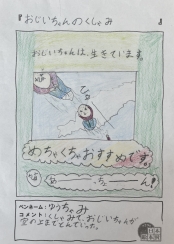 『おじいちゃんのくしゃみ』
おじいちゃんは、生きています。
ひゅ
めちゃくちゃおすすめです。
ペンネーム：ゆうちゃみ
コメント：くしゃみで、おじいちゃんが
空の上までとんでいった。